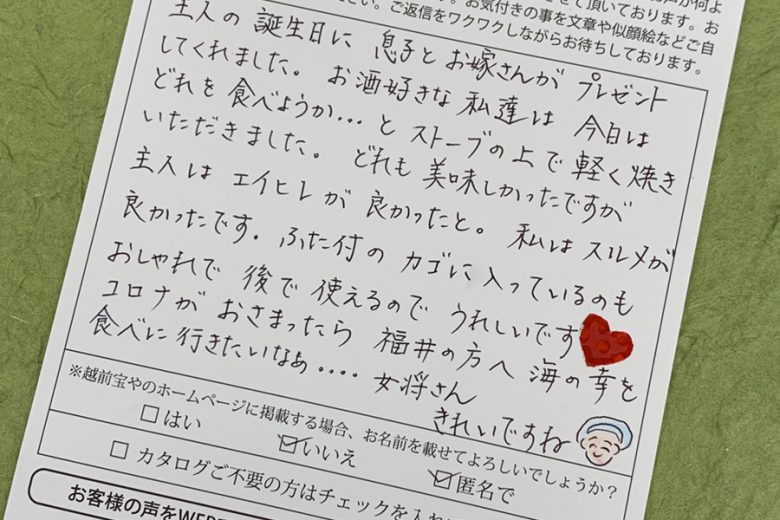 お気付きの事を文章や似顔絵などご自
ご返信をワクワクしながらお待ちしております。
主人の 誕生日に 息子と お嫁さんが プレゼント
してくれました。 お酒好きな 私達は 今日は
どれを 食べようか… と ストーブの 上で 軽く 焼き
いただきました。 どれも 美味しかったですが
主人は エイヒレが 良かったと。 私は スルメが
良かったです. ふた付の カゴに 入っているのも
おしゃれで 後で 使えるので うれしいです
コロナが おさまったら 福井の方へ 海の幸を
食べに 行きたいなぁ.... 女将さん
きれいですね
※越前宝やのホームページに掲載する場合、お名前を載せてよろしいでしょうか?
はい いいえ 匿名で
カタログご不要の方はチェックを入れ
お客様の声をWEB